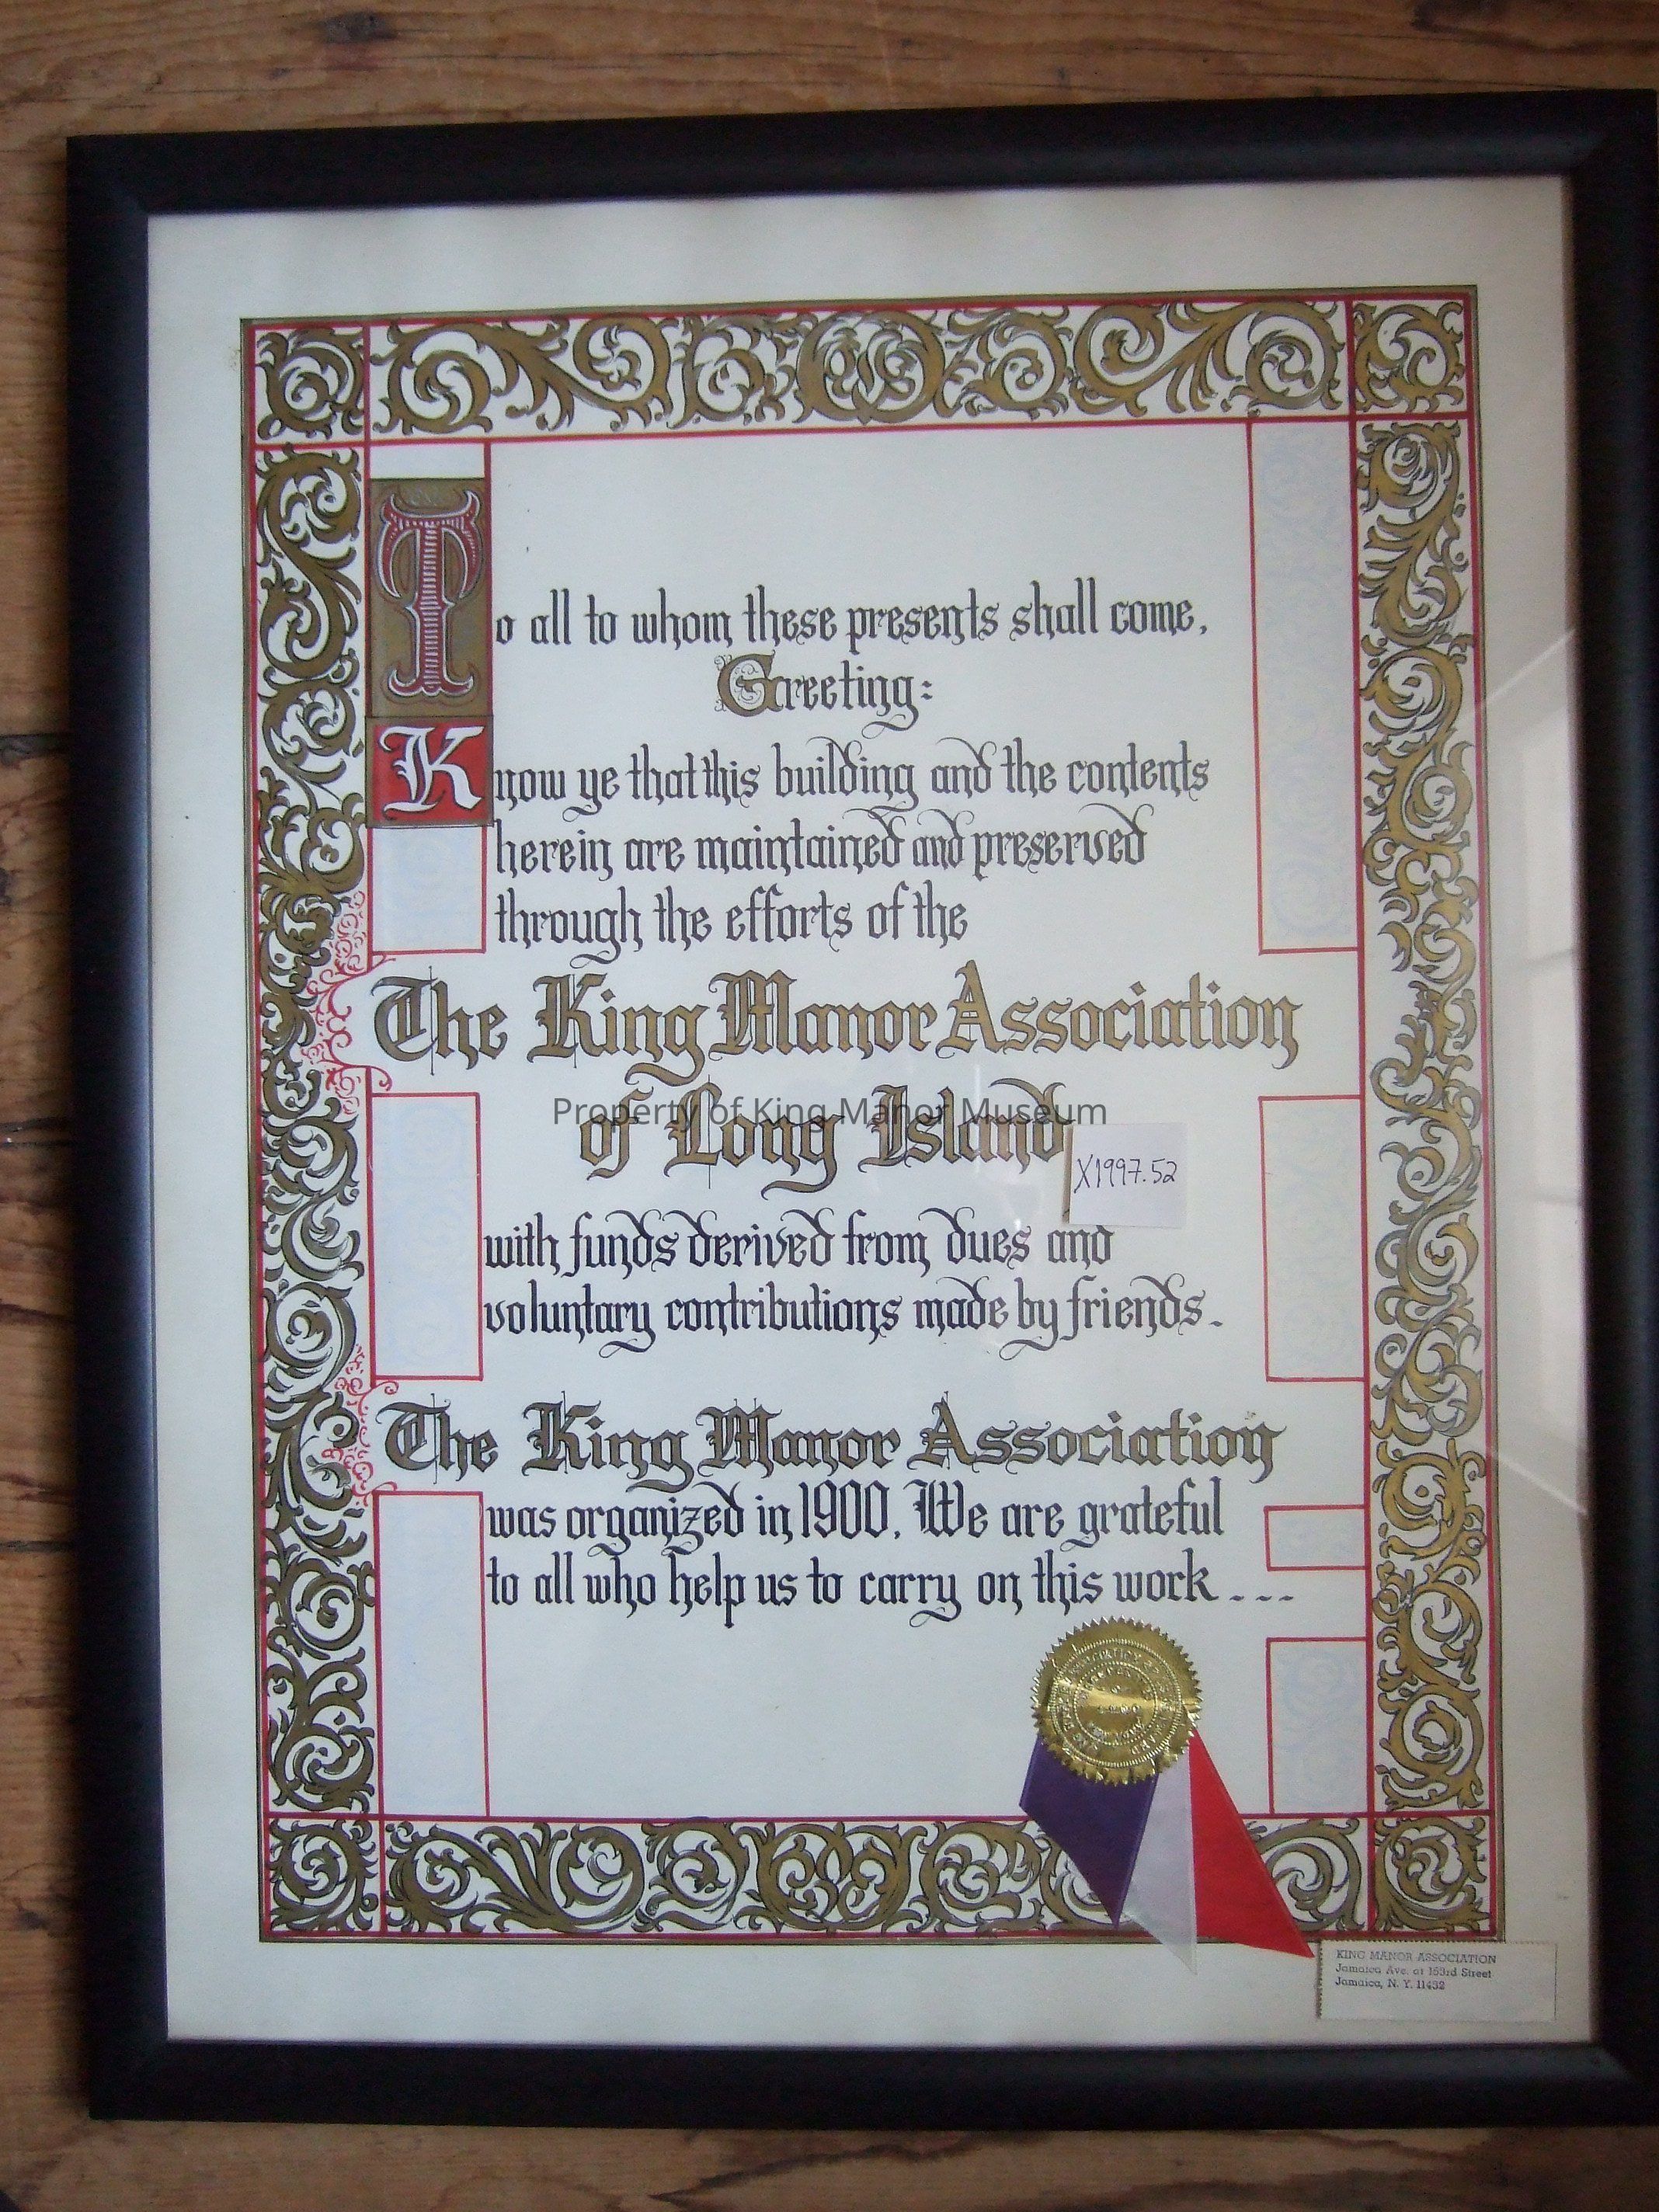 To all to whom these presents shall come,
Greeting:
Know ye that this building and the contents
herein are maintained and preserved
through the efforts of the
The King Manor Association
of Long Island
Property of King Manor Museum
X1997.52
with funds derived from dues and
voluntary contributions made by friends.
The King Manor Association
was organized in 1900. We are grateful
to all who help us to carry on this work ...
KING MANOR ASSOCIATION
Jamaica Ave. at 153rd Street
Jamaica, N. Y. 11432